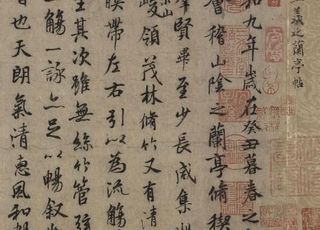 羲之蘭亭帖
和九年歲在癸丑暮春之
會稽山陰之蘭亭脩稧
羣賢畢至少長咸集
峻領茂林脩竹又有清
暎帶左右引以為流觴
坐其次雖無絲竹管弦
觴一詠亦足以暢敘
也天朗氣清惠風和